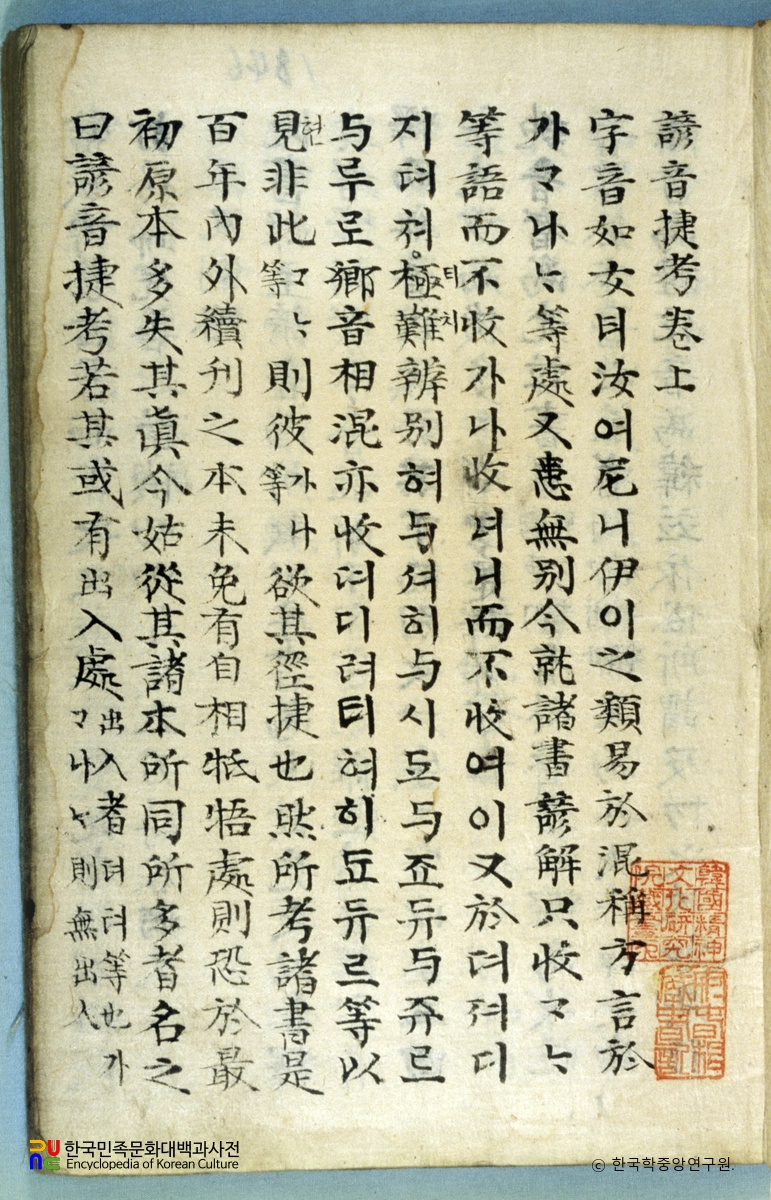 諺音捷考卷上
字音如女녀汝여尼니伊이之類易於混稱方言於
가ᄀᆞ나ᄂᆞ等處又患無別今就諸書諺解只收ᄀᆞᄂᆞ
等語而不收가나收녀니而不收여이又於뎌져디
지텨쳐티치極難辨別혀与셔히与시됴与죠듀与쥬르
与루로鄕音相混亦收뎌디려텨혀히됴듀르等以
見현非此等ᄀᆞᄂᆞ則彼等가나欲其徑捷也然所考諸書是
百年內外續刊之本未免有自相牴牾處則恐於最
初原本多失其眞今姑從其諸本所同所多者名之
曰諺音捷考若其或有出入處出入者뎌려等也가
ᄀᆞ나ᄂᆞ則無出入
한국민족문화대백과사전
Encyclopedia of Korean Culture
© 한국학중앙연구원.